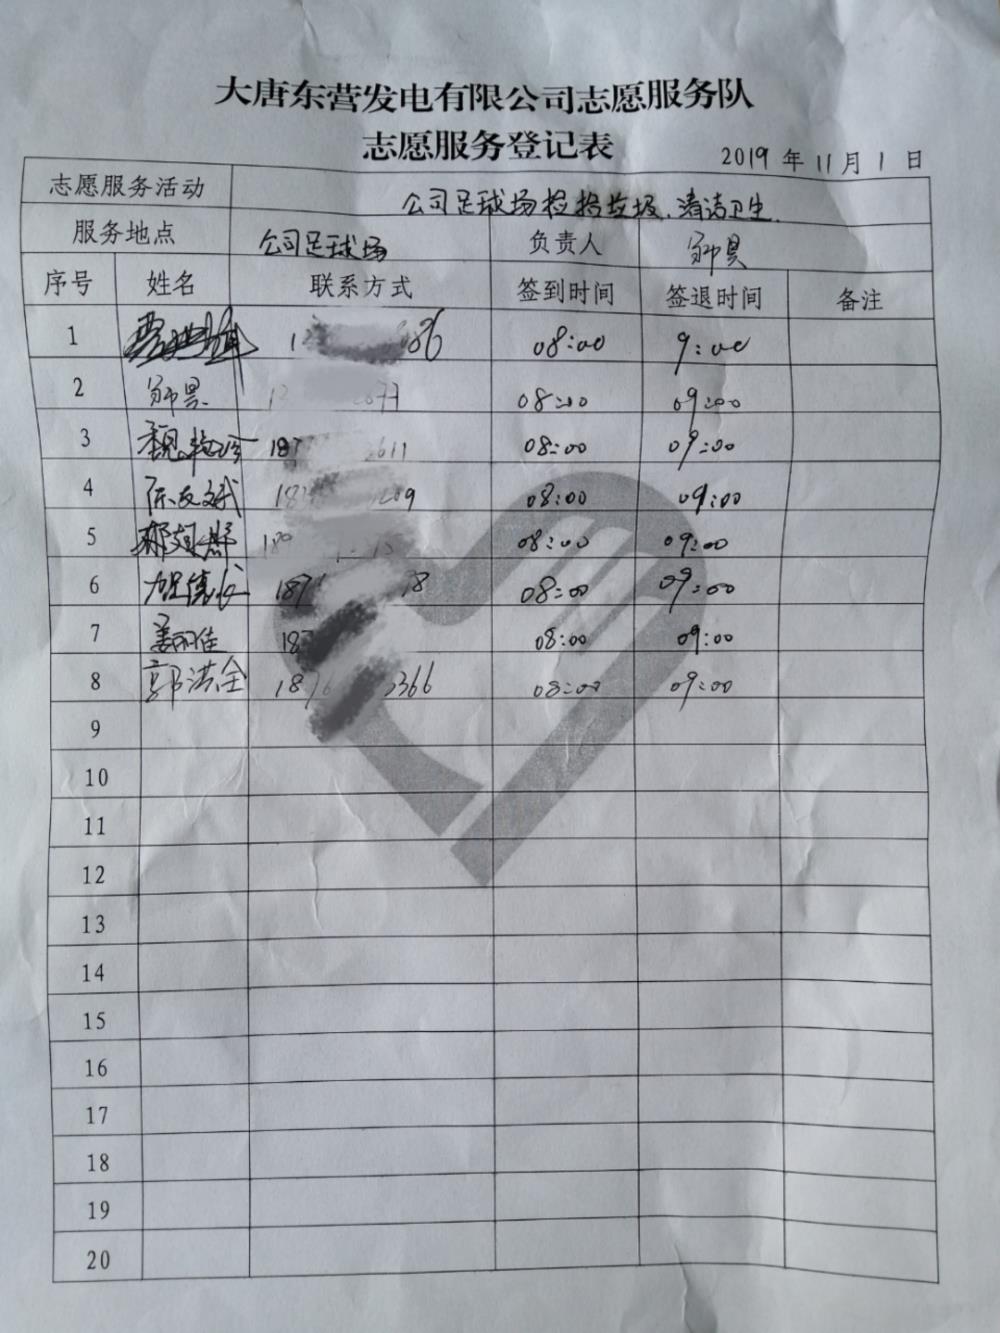 大唐东营发电有限公司志愿服务队
志愿服务登记表
2019 年 11 月 1 日
志愿服务活动 公司足球场捡拾垃圾、清洁卫生.
服务地点 公司足球场 负责人
序号 姓名 联系方式 签到时间 签退时间 备注
1 1 086 08:00 9:00
2 08:00 09:00
3 187 2611 08:00 09:00
4 陈友斌 18 209 08:00 09:00
5 08:00 09:00
6 贺德成 187 78 08:00 09:00
7 姜丽佳 187 08:00 09:00
8 郭洪全 187 3366 08:00 09:00
9
10
11
12
13
14
15
16
17
18
19
20